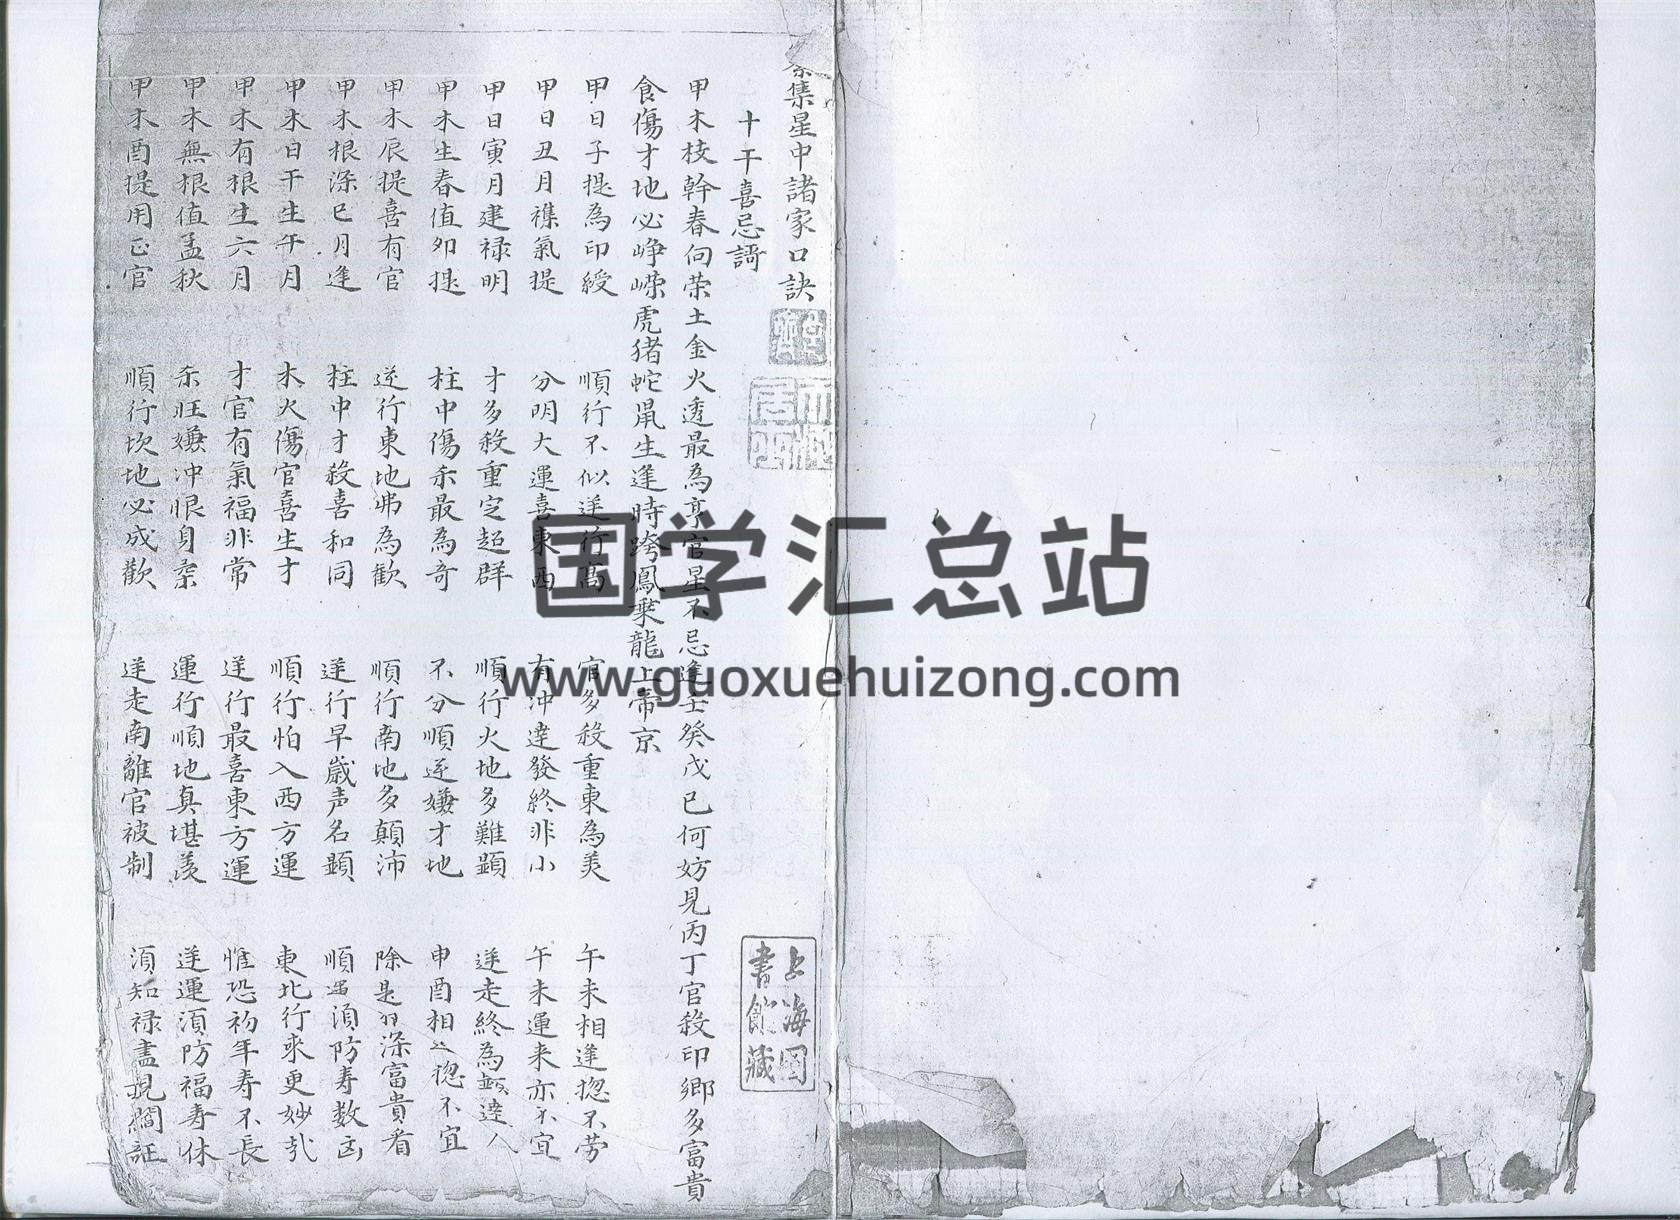 集星中諸家口訣
十干喜忌謌
甲木枝幹春向荣土金火透最為亨官星不忌逢壬癸戊己何妨見丙丁官殺印鄉多富貴
食傷才地必崢嶸虎猪蛇鼠生逢時跨鳳乗龍上帝京
甲日子提為印綬 順行不似逆行高 官多殺重東為美 午未相逢揔不劳
甲日丑月襍氣提 分明大運喜東西 有冲逹發終非小 午未運来亦不宜
甲日寅月建禄明 才多殺重定超群 順行火地多難顯 逆走終為逹人
甲木生春值夘提 柱中傷杀最為奇 不分順逆嫌才地 申酉相之揔不宜
甲木辰提喜有官 逆行東地弗為歡 順行南地多顛沛 除是深富貴看
甲木根深巳月逢 柱中才殺喜和同 逆行早歲声名顯 順遇須防寿数凶
甲木日干生午月 木火傷官喜生才 順行怕入西方運 東北行來更妙哉
甲木有根生六月 才官有氣福非常 逆行最喜東方運 惟恐初年寿不長
甲木無根值孟秋 杀旺嫌冲恨身柔 運行順地真堪羨 逆運須防福寿休
甲木酉提用正官 順行坎地必成歡 逆走南離官被制 須知禄盡見閻
上海圖書館藏
国学汇总站
www.guoxuehuizong.com